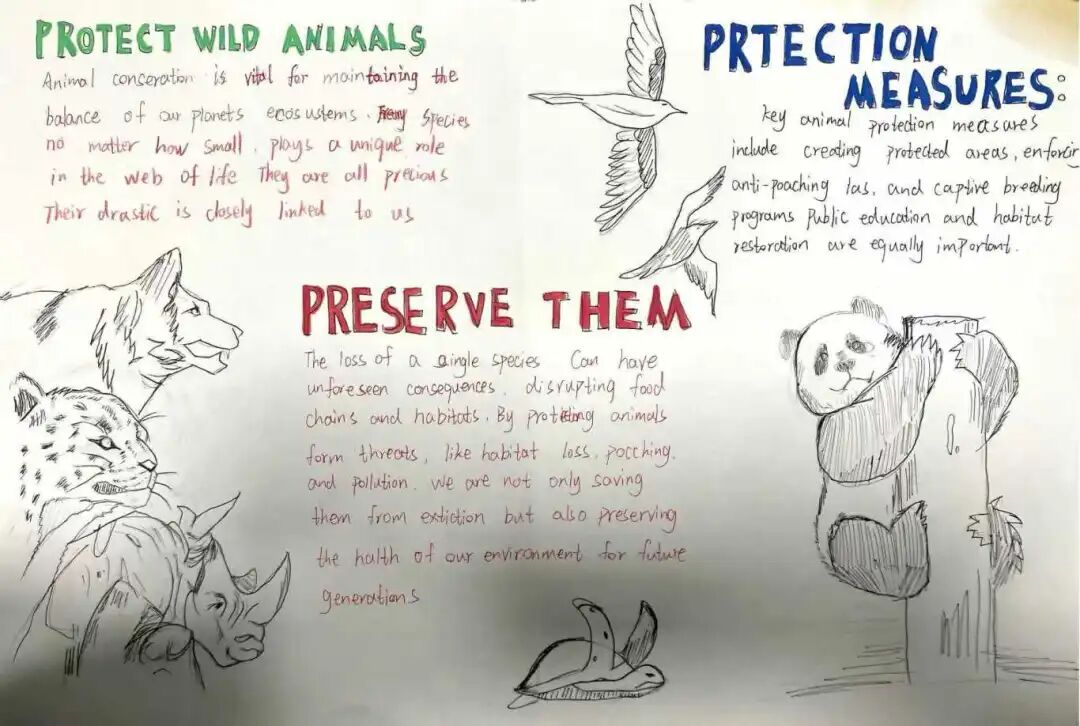 PROTECT WILD ANIMALS
Animal conseration is vital for maintaining the
balance of our planets ecosustems. species
no matter how small, plays a unique role
in the web of life They are all precious
Their drastic is closely linked to us
PRESERVE THEM
The loss of a single species Can have
unforeseen consequences. disrupting food
chains and habitats. By protecting animals
form threats, like habitat loss, pocching.
and pollution. We are not only saving
them from extiction but also preserving
the halth of our environment for future
generations
PRTECTION
MEASURES:
key animal protection measures
include creating protected areas, enforcin
anti-poaching las, and captive breeding
programs Public education and habitat
restoration are equally important.